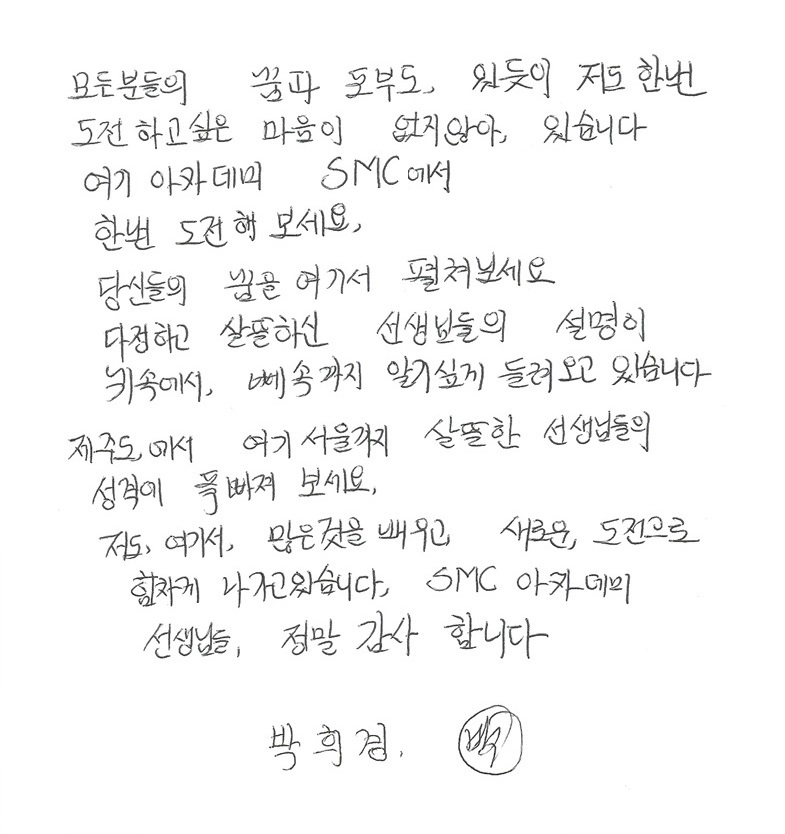 모든분들의 꿈과 포부도, 있듯이 저도 한번
도전 하고싶은 마음이 없지않아, 있습니다
여기 아카데미 SMC에서
한번 도전해 보세요,
당신들의 꿈을 여기서 펼쳐보세요
다정하고 살뜰하신 선생님들의 설명이
귀속에서, 뼈속까지 알기싶게 들려오고 있습니다
제주도에서 여기 서울까지 살뜰한 선생님들의
성격에 푹빠져 보세요,
저도, 여기서, 많은것을 배우고 새로운, 도전으로
힘차게 나가고있습니다, SMC 아카데미
선생님들, 정말 감사 합니다
박희경.